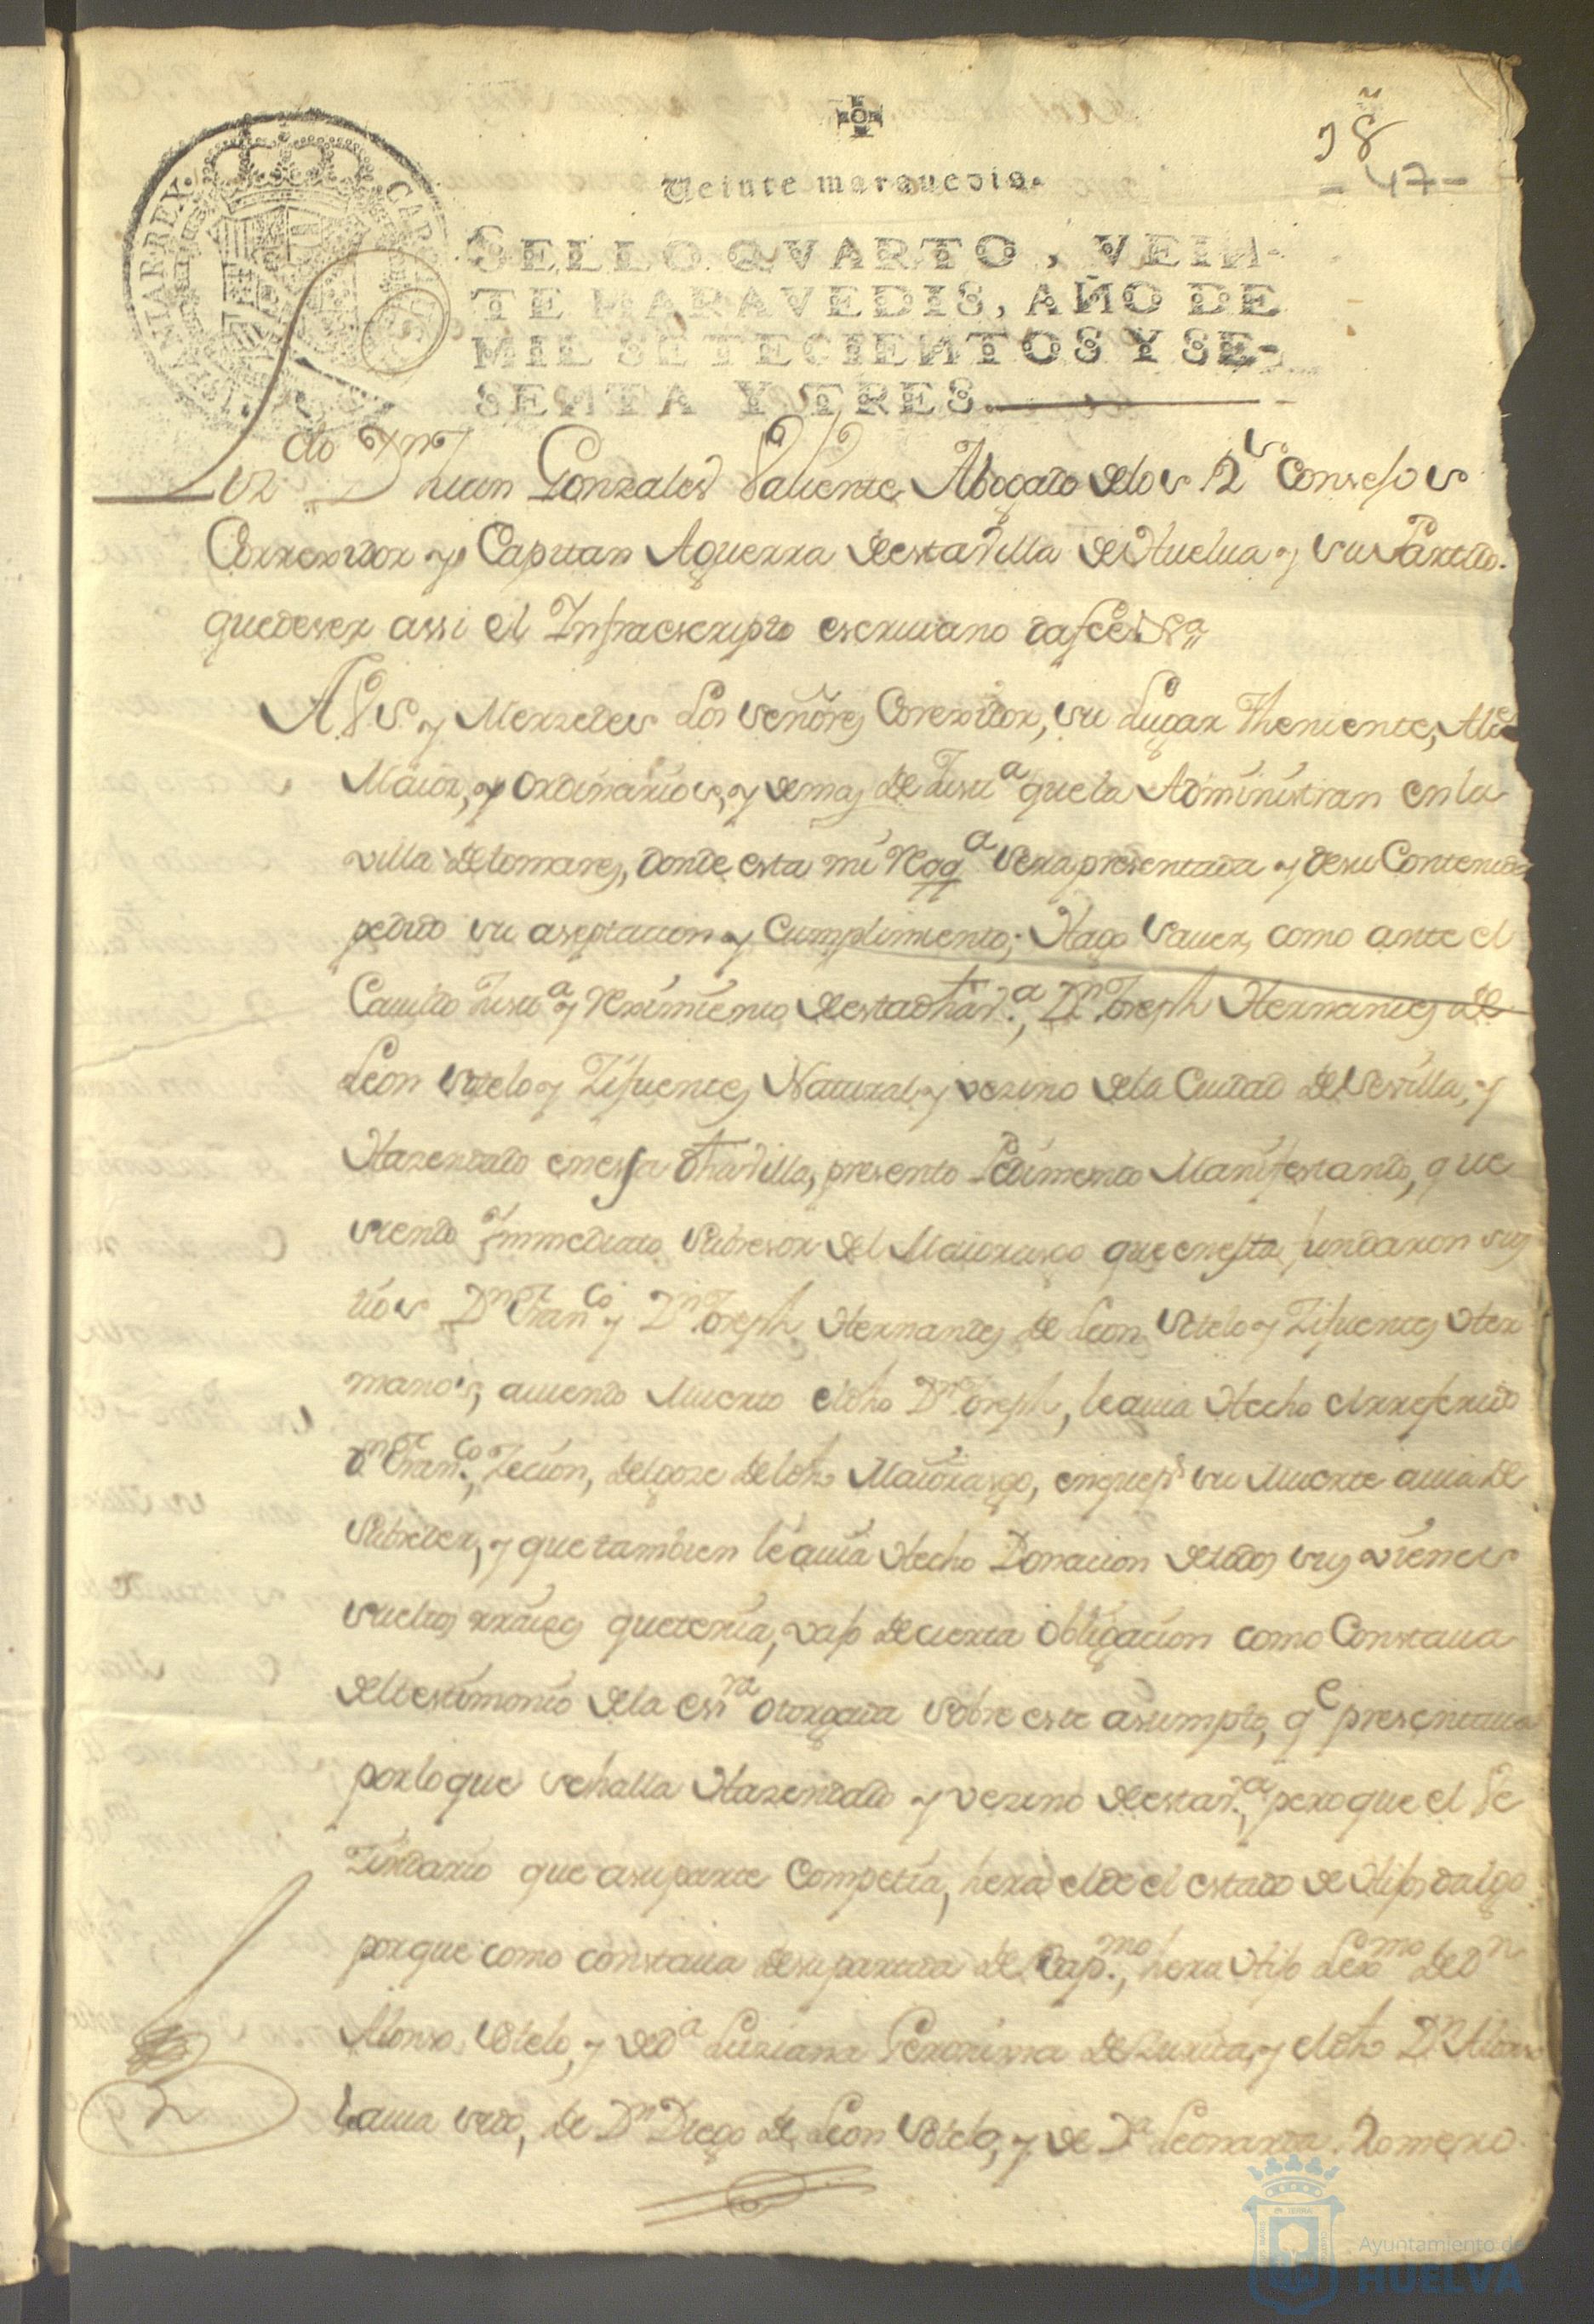 18
- 47 -
Veinte marauedis.
HISPANIAR. REX. CAROLUS
SELLO QVARTO, VEIN-
TE MARAVEDIS, AÑO DE
MIL SETECIENTOS Y SE-
SENTA Y TRES.
Lizdo Dn Juan Gonzales Valiente Abogado delos Rs Consejos
Correxidor y Capitan Aguerra destavilla de Huelua y su Partido.
quedeser assi el Infraescripto escriuano dafee
A VS. y Merzedes Los señores Corexidor, su Lugar Theniente, Alcde
Maior, y Ordinarios, y demas de Justa que la Administran en la
villa de tomares, donde esta mi Reqa sera presentada y desu Contenido
pedido su aseptacion y Cumplimiento; Hago Sauer, como ante el
Cauildo Justa y Reximiento destadha va, Dn Joseph Hernandes de
Leon Sotelo y Zifuentes Natural y vezino dela Ciudad de Sevilla, y
Hazendado enessa dha villa, presento Pedimento Manifestando, que
siendo Immediato Subsesor del Maiorasgo que enesta fundaron sus
tios Dn Franco y Dn Joseph Hernandes de Leon Sotelo y Zifuentes Her
manos, auiendo Muerto eldho Dn Joseph, le auia Hecho elrreferido
Dn Franco, Zecion, delgoze deldho Maiorasgo, enquepr su Muerte auia de
Subseder, y que tambien le auia Hecho Donacion detodos sus vienes
sueltos rraises que tenia, vajo de cierta obligacion como Constaua
deltestimonio dela essra otorgada sobre este asumpto, qe presentaua
porloque sehalla Hazendado y vezino destava, pero que el Ve
zindario que asuparte Competia, hera elde el estado de Hijosdalgo
porque como constaua desupartida de Bapmo, hera Hijo Lexmo de Dn
Alonso Sotelo, y de Da Luziana Geronima de Zurita, y eldho Dn Alonso
lo auia sido, de Dn Diego de Leon Sotelo, y de Da Leonarda Romero
2
Ayuntamiento de
HUELVA